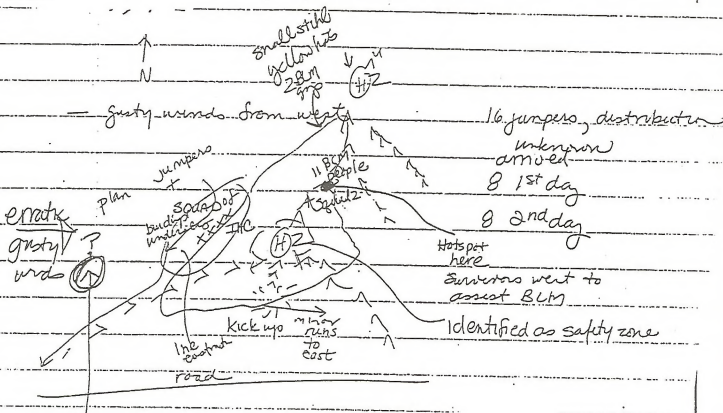 small stihl
yellow hats
2 BLM
grip
H2
N
— gusty winds from west
16 jumpers, distribution
unknown
arrived
8 1st day
8 2nd day
11 BLM
people
+ Squad 2
jumpers
+
plan
SQUAD
IHC
erratic
gusty
wnds
?
H2
Hotspot
here
Survivors went to
assist BLM
Identified as safety zone
kick up
minor
runs
to
east
line
road